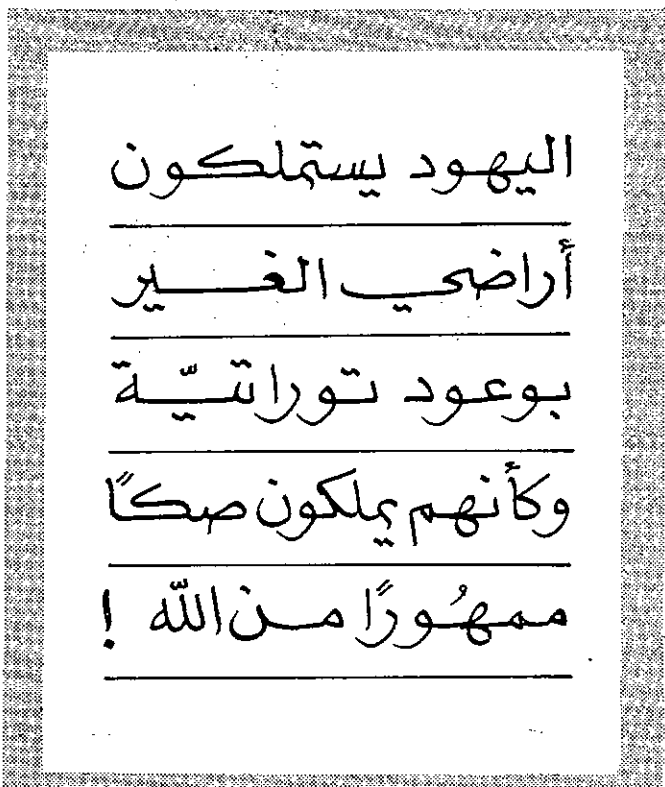 اليهود يستملكون
أراضي الغير
بوعود توراتيّة
وكأنهم يملكون صكًا
ممهُورًا من اللّه !